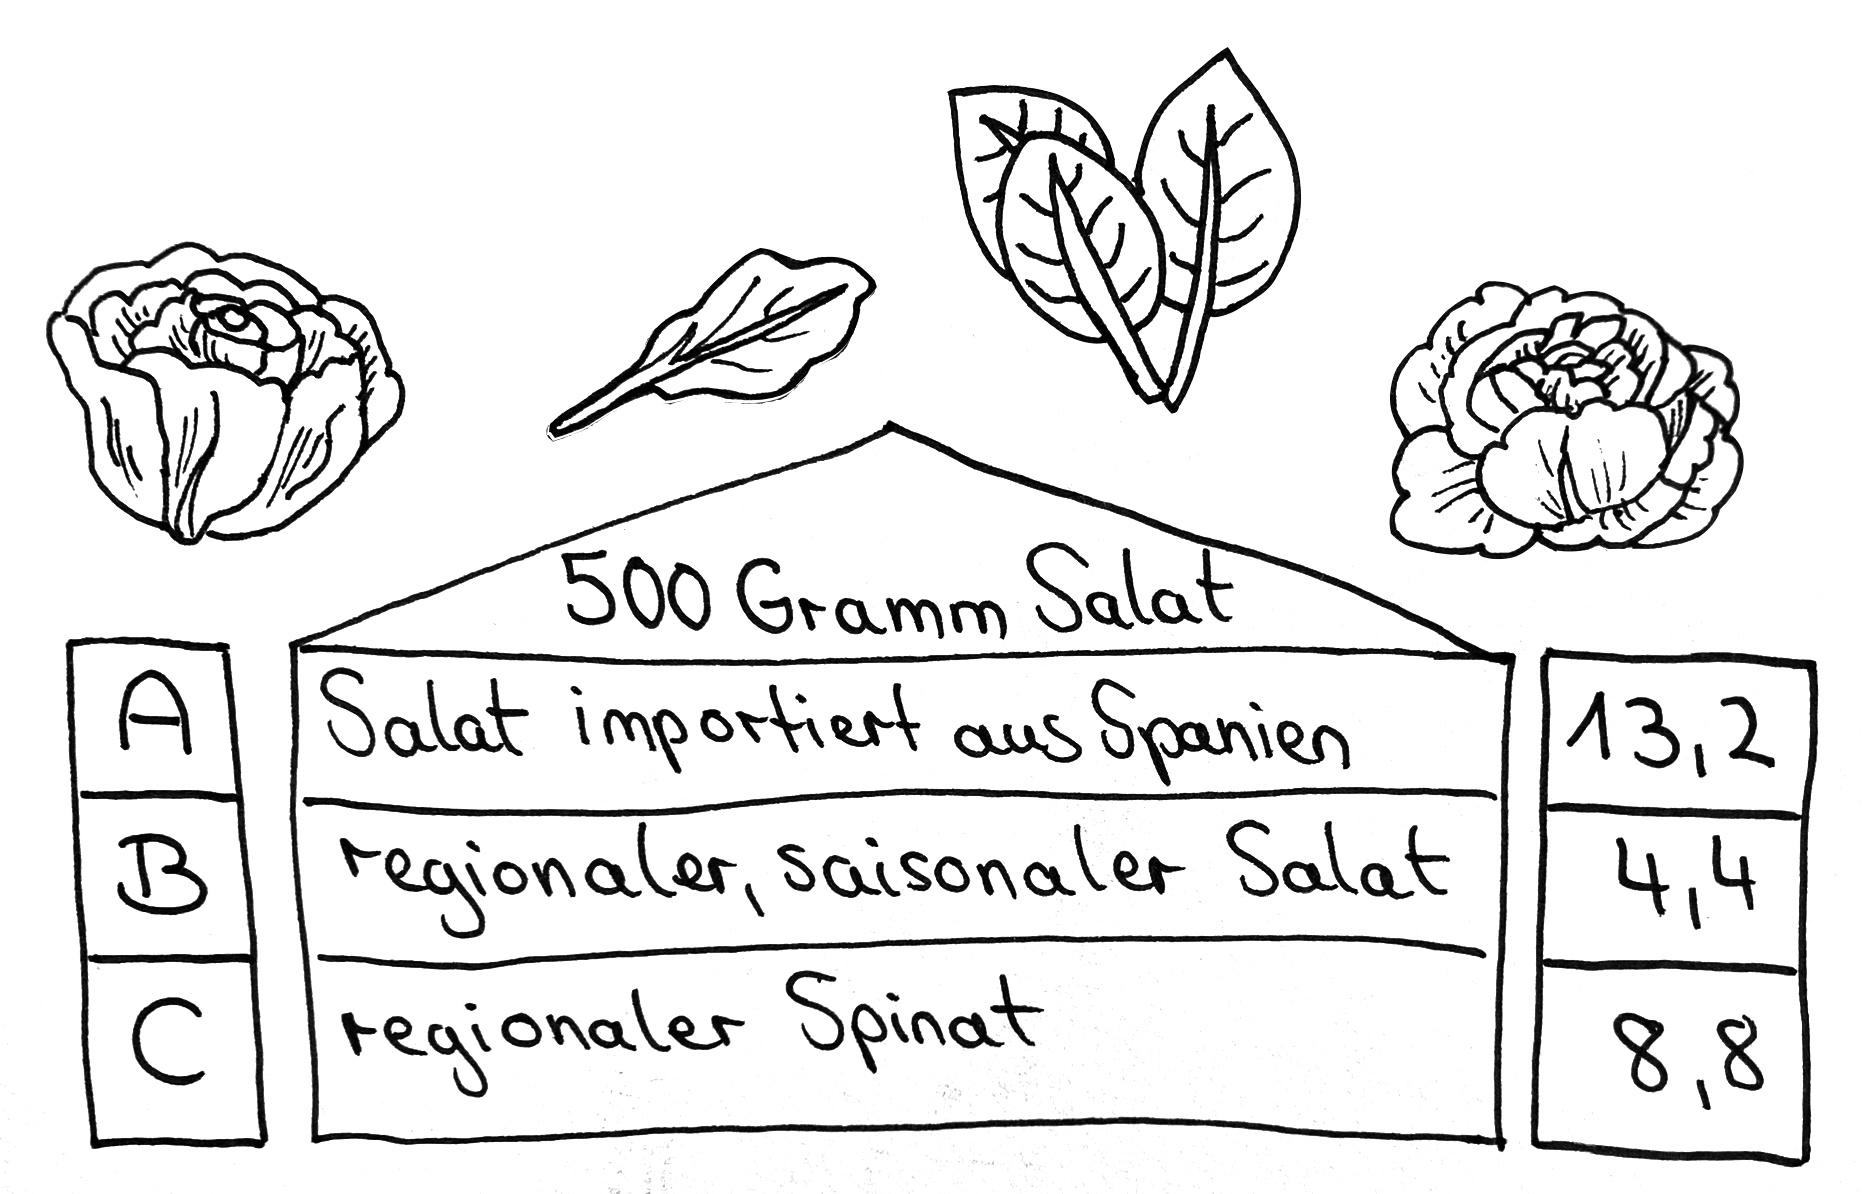 500 Gramm Salat
A Salat importiert aus Spanien 13,2
B regionaler, saisonaler Salat 4,4
C regionaler Spinat 8,8